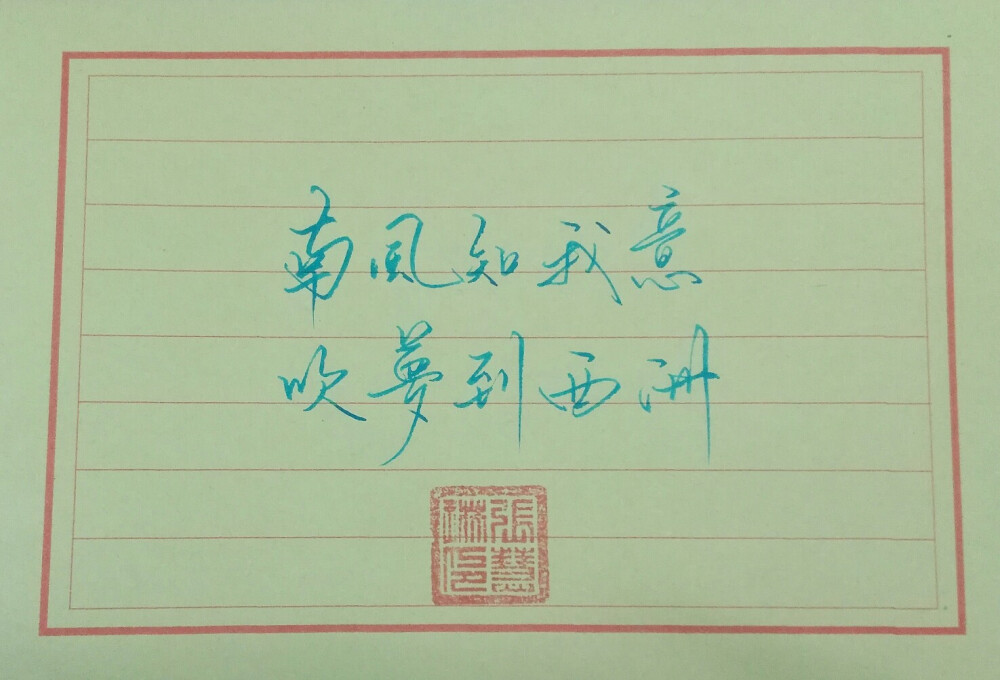 南风知我意
吹梦到西洲
張慧琳印